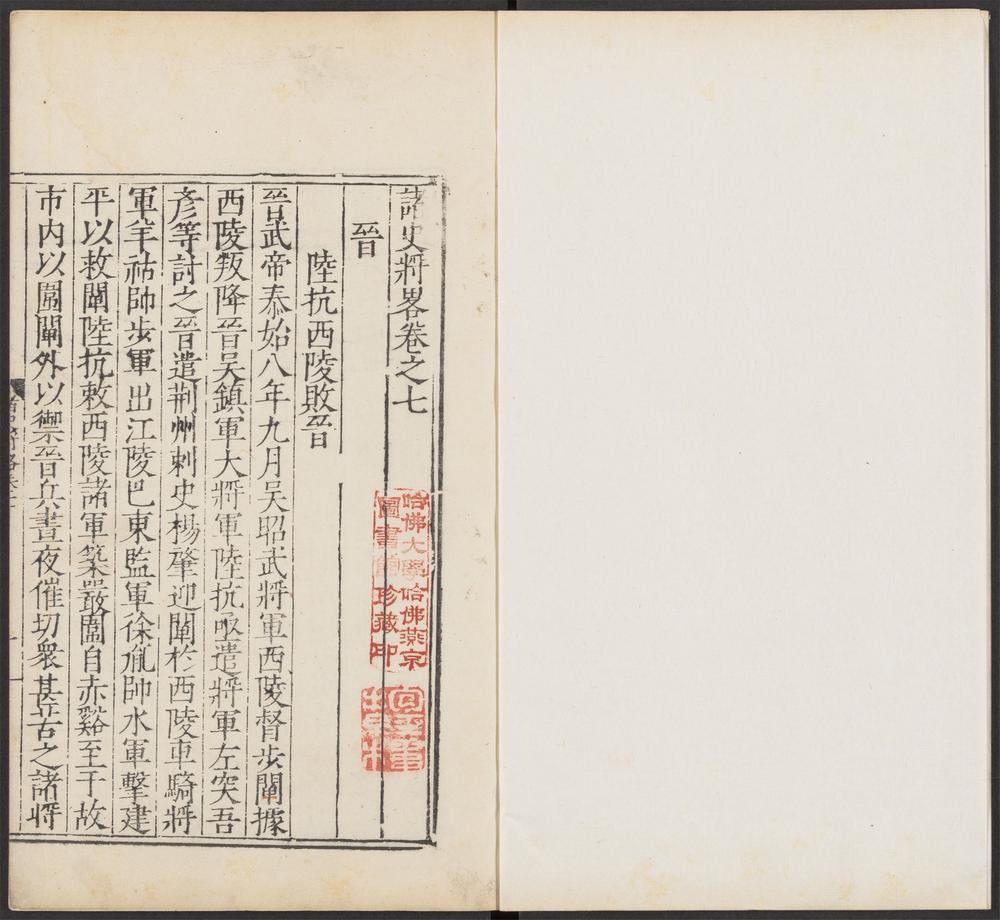 諸史將畧卷之七
晉
陸抗西陵敗晉
晉武帝泰始八年九月吳昭武將軍西陵督步闡據
西陵叛降晉吳鎮軍大將軍陸抗亟遣將軍左奕吾
彥等討之晉遣荆州刺史楊肇迎闡於西陵車騎將
軍羊祜帥步軍出江陵巴東監軍徐胤帥水軍擊建
平以救闡陸抗敕西陵諸軍築嚴圍自赤谿至于故
市内以圍闡外以禦晉兵晝夜催切衆甚苦之諸將
哈佛大學哈佛燕京
圖書館珍藏印